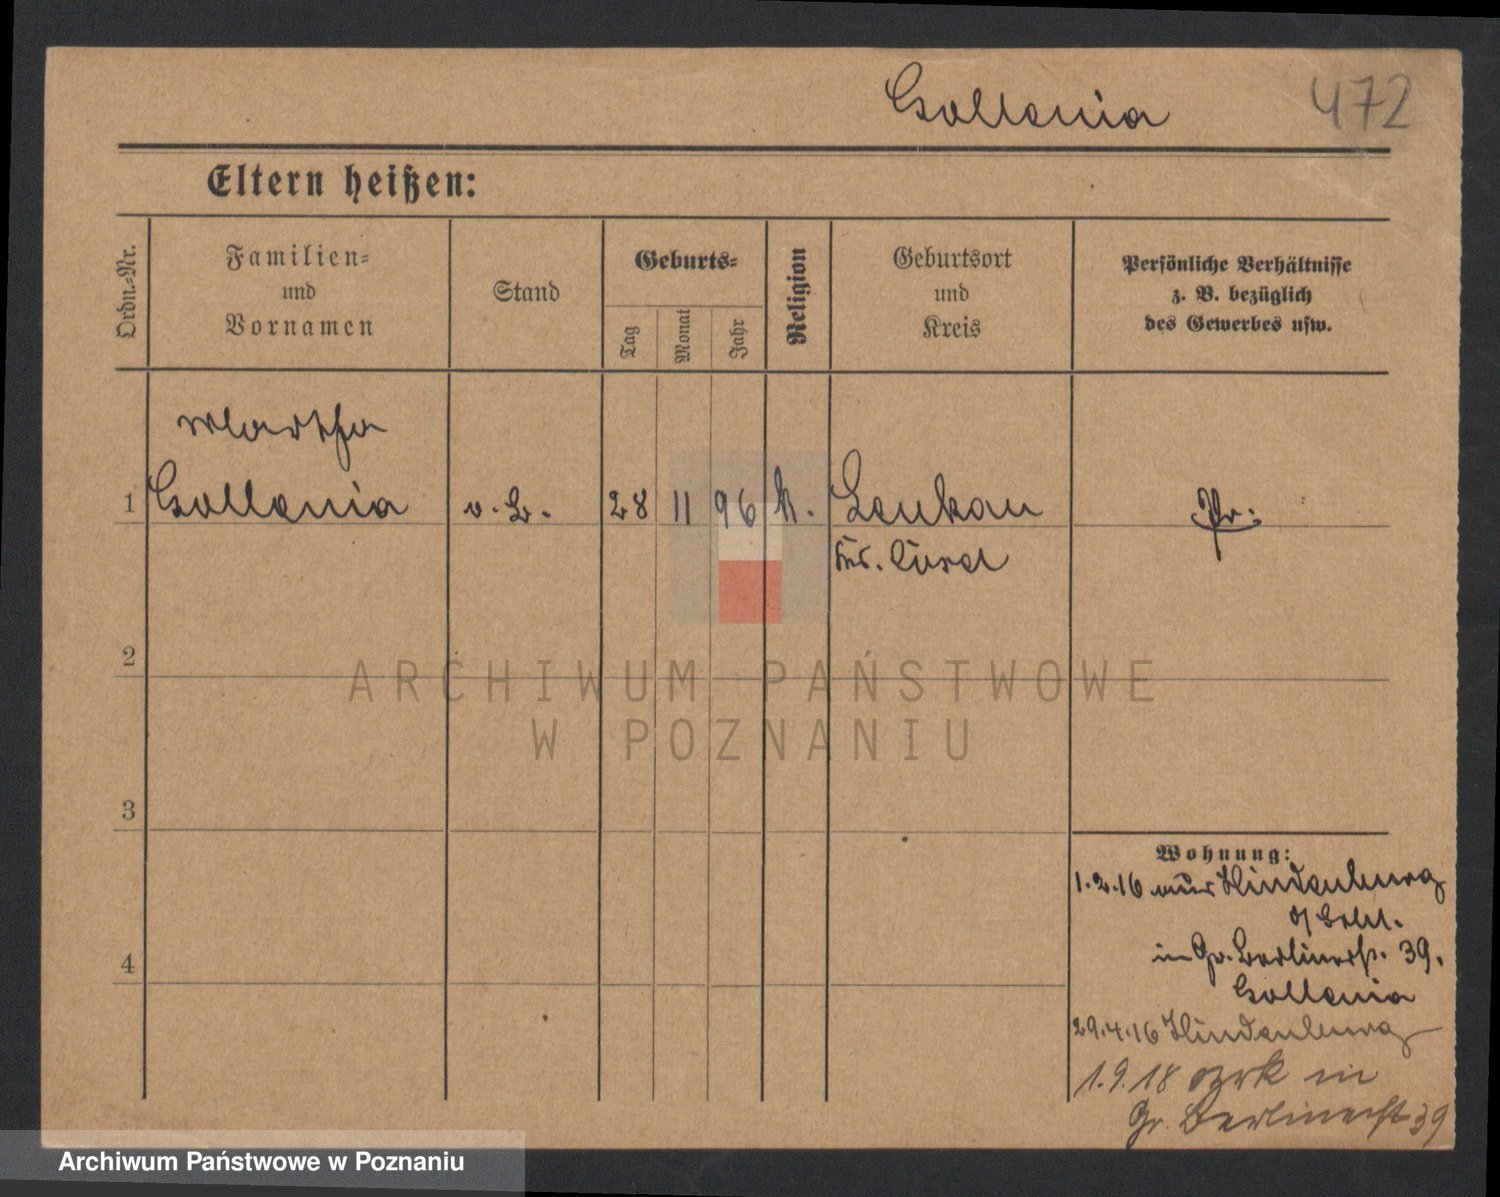 Gollania 472
Eltern heißen:
Ordn.-Nr.
Familien-
und
Vornamen
Stand
Geburts-
Tag
Monat
Jahr
Religion
Geburtsort
und
Kreis
Persönliche Verhältnisse
z. B. bezüglich
des Gewerbes usw.
Martha
1 Gollania v. B. 28 11 96 k. Lenkau Pr.
Krs.
2
3
4
Wohnung:
1.2.16 aus Hindenburg
in Gr. Berlinerst. 39.
Gollania
29.4.16 Hindenburg
1.9.18 zrk in
Gr. Berlinerst 39
ARCHIWUM PAŃSTWOWE
W POZNANIU
Archiwum Państwowe w Poznaniu